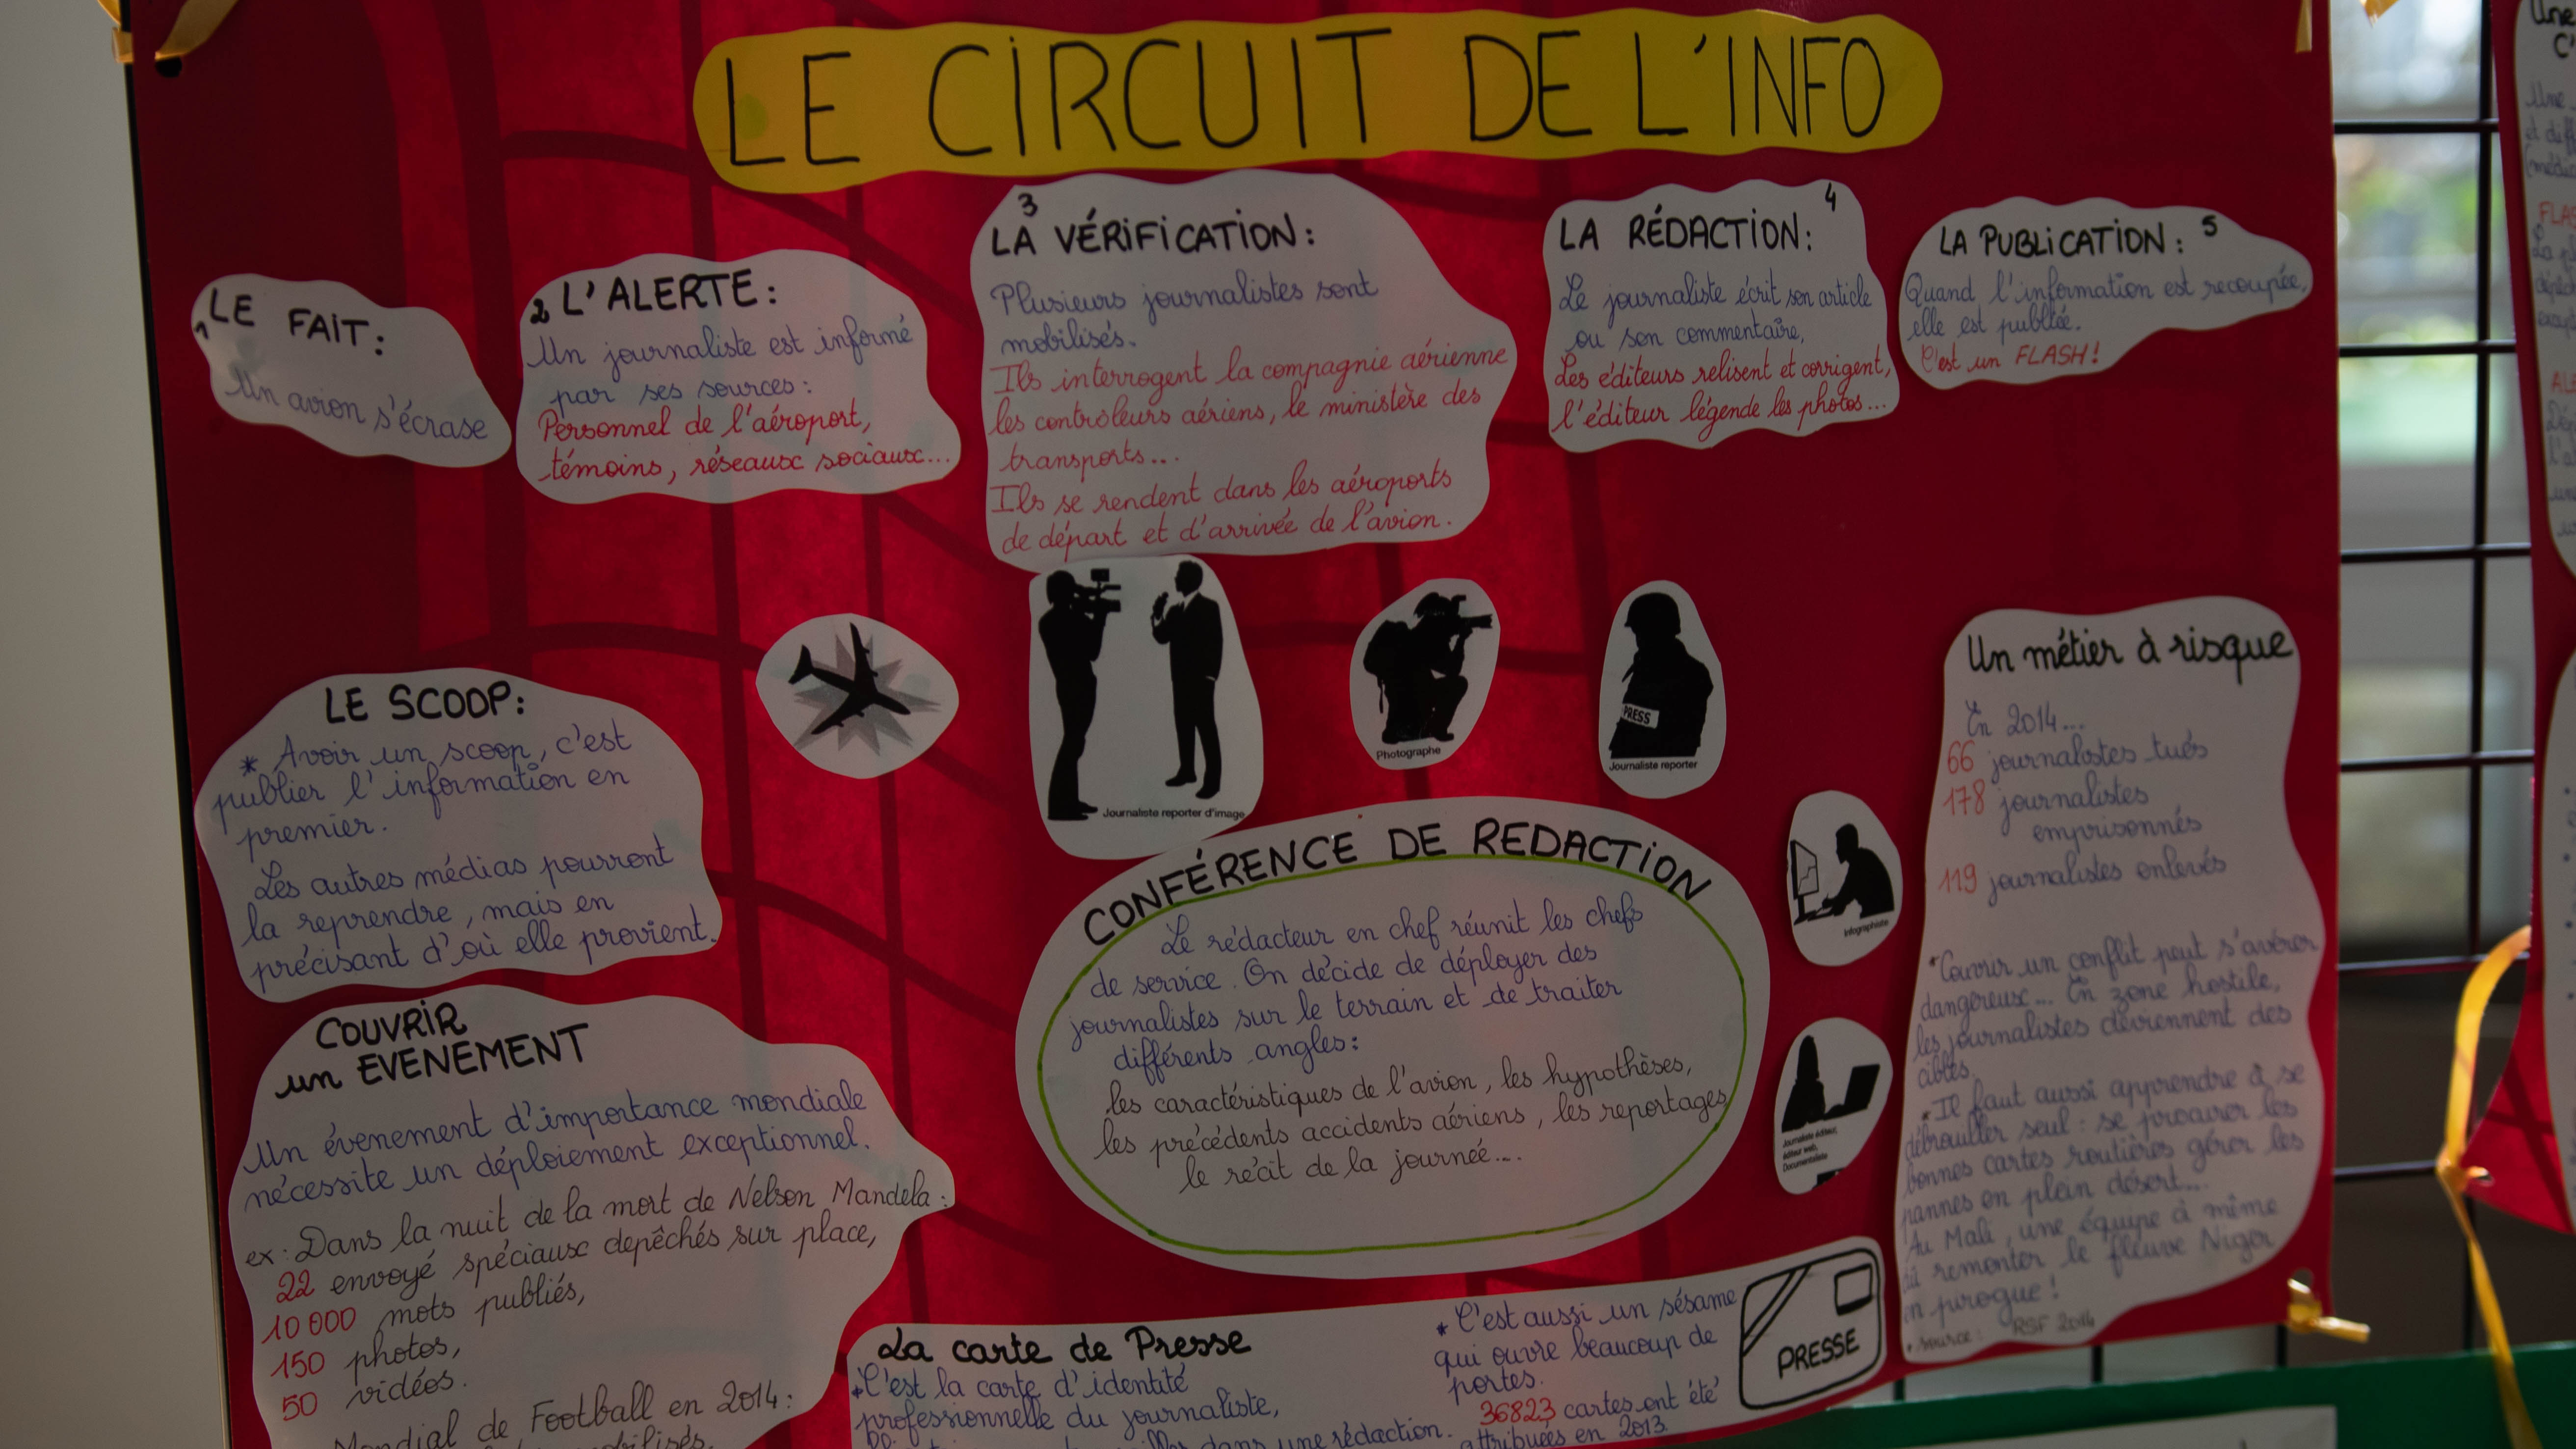 LE CIRCUIT DE L'INFO
1 LE FAIT:
Un avion s'écrase
2 L'ALERTE:
Un journaliste est informé
par ses sources:
Personnel de l'aéroport,
témoins, réseaux sociaux...
3
LA VÉRIFICATION:
Plusieurs journalistes sont
mobilisés.
Ils interrogent la compagnie aérienne
les contrôleurs aériens, le ministère des
transports...
Ils se rendent dans les aéroports
de départ et d'arrivée de l'avion.
4
LA RÉDACTION:
Le journaliste écrit son article
ou son commentaire,
Les éditeurs relisent et corrigent,
l'éditeur légende les photos...
LA PUBLICATION: 5
Quand l'information est recoupée,
elle est publiée.
C'est un FLASH!
Journaliste reporter d'image
Photographe
PRESS
Journaliste reporter
LE SCOOP:
* Avoir un scoop, c'est
publier l'information en
premier.
Les autres médias pourront
la reprendre, mais en
précisant d'où elle provient.
COUVRIR
un EVENEMENT
Un évenement d'importance mondiale
nécessite un déploiement exceptionnel.
ex: Dans la nuit de la mort de Nelson Mandela:
22 envoyé spéciaux depêchés sur place,
10 000 mots publiés,
150 photos,
50 vidéos.
Mondial de Football en 2014:
CONFÉRENCE DE REDACTION
Le rédacteur en chef réunit les chefs
de service. On décide de déployer des
journalistes sur le terrain et de traiter
différents angles:
les caractéristiques de l'avion, les hypothèses,
les précédents accidents aériens, les reportages
le récit de la journée...
Infographiste
Journaliste éditeur,
éditeur web,
Documentaliste
Un métier à risque
En 2014...
66 journalistes tués
178 journalistes
emprisonnés
119 journalistes enlevés
*Couvrir un conflit peut s'avérer
dangereux... En zone hostile,
les journalistes deviennent des
cibles.
*Il faut aussi apprendre à se
débrouiller seul: se procurer les
bonnes cartes routières gérer les
pannes en plein désert...
Au Mali, une équipe à même
dû remonter le fleuve Niger
en pirogue!
source: RSF 2014
La carte de Presse
*C'est la carte d'identité
professionnelle du journaliste,
dans une rédaction.
*C'est aussi un sésame
qui ouvre beaucoup de
portes.
36823 cartes ont été
attribuées en 2013.
PRESSE